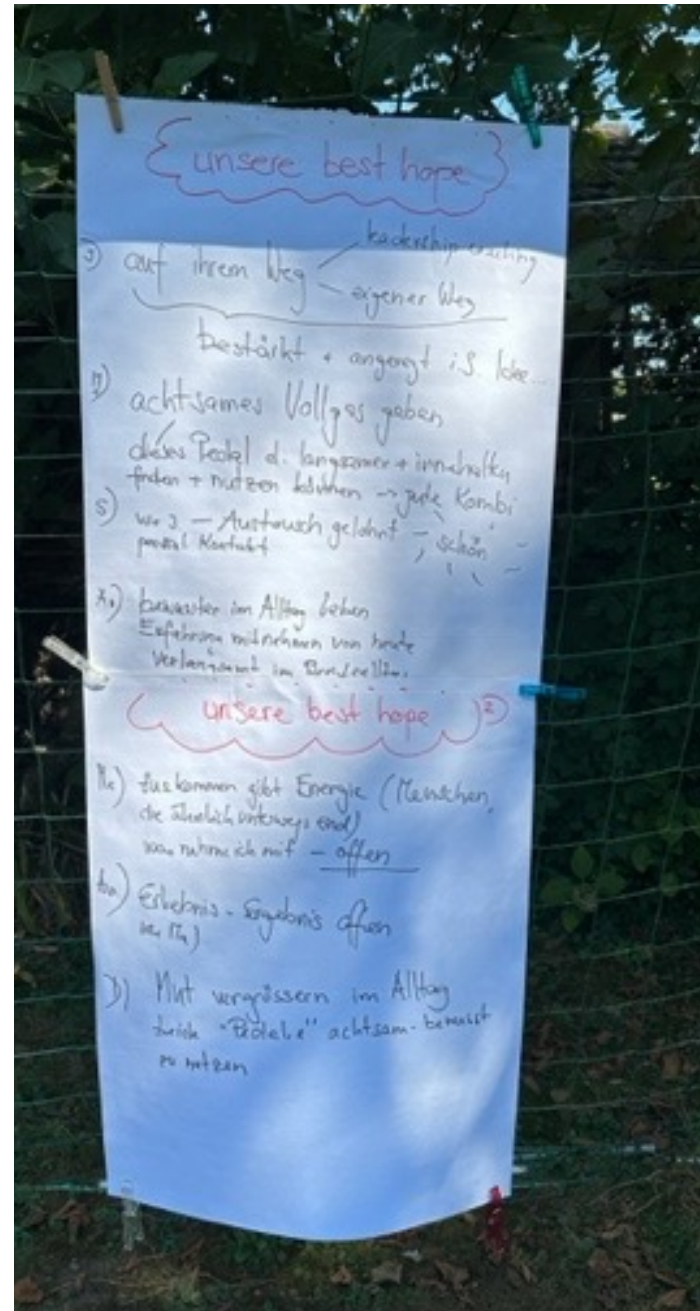 unsere best hope
J) auf ihrem Weg
leadership coaching
eigener Weg
bestärkt + angeregt i.S. Idee...
M) achtsames Vollgas geben
dieses Pedal d. langsamer + innehalten
finden + nutzen können → gute Kombi
S) wie J. – Austausch gelohnt – schön
Kontakt
bewusster im Alltag leben
Erfahrung mitnehmen von heute
verlangsamt im
unsere best hope 2
kommen gibt Energie (Menschen,
die ähnlich unterwegs sind)
was nehme ich mit – offen
Erlebnis - Ergebnis offen
D) Mut vergrössern im Alltag
durch "Pedale" achtsam-bewusst
zu nutzen